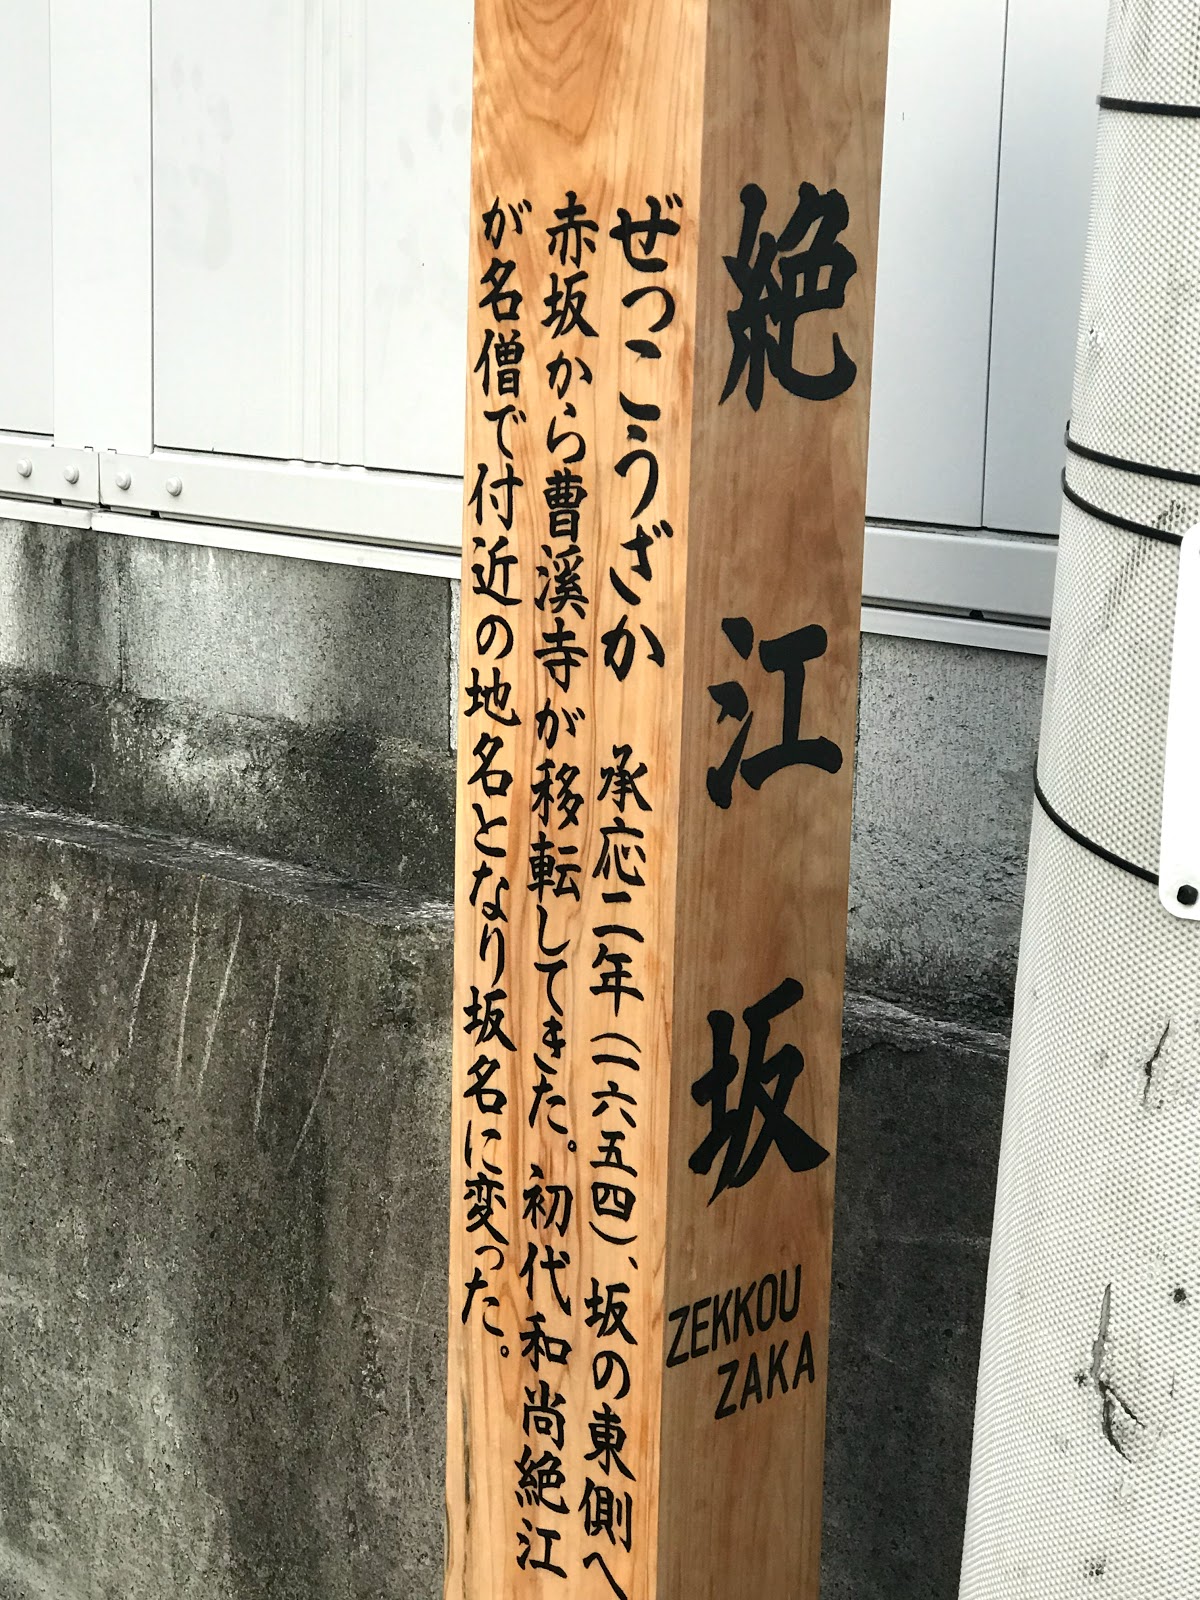 絶江坂
ZEKKOU
ZAKA
ぜっこうざか 承応二年(一六五四)、坂の東側へ
赤坂から曹溪寺が移転してきた。初代和尚絶江
が名僧で付近の地名となり坂名に変った。